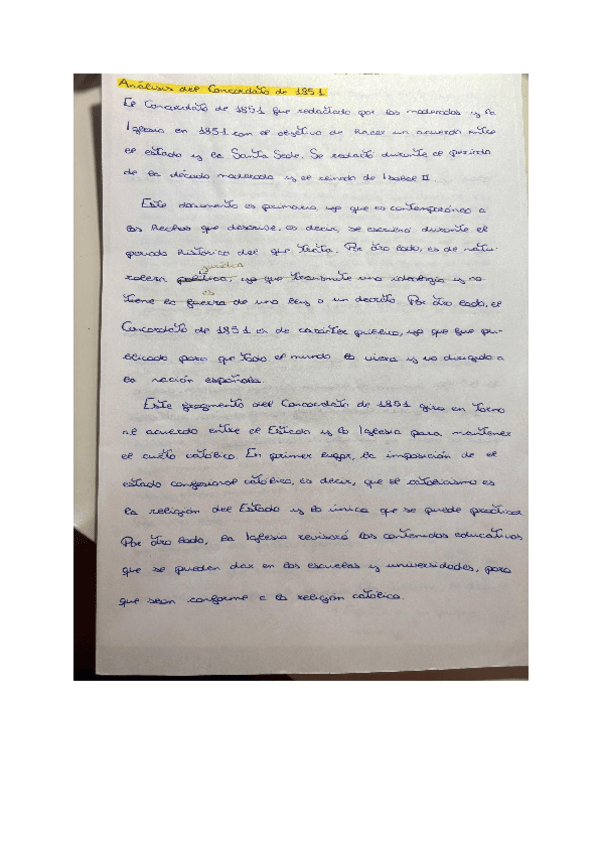 Análisis del Concordato de 1851
El Concordato de 1851 fue redactado por los moderados y la
Iglesia en 1851 con el objetivo de hacer un acuerdo entre
el estado y la Santa Sede. Se redactó durante el período
de la década moderada y el reinado de Isabel II.
Este documento es primario, ya que es contemporáneo a
los hechos que describe, es decir, se escribió durante el
periodo histórico del que trata. Por otro lado, es de natu-
jurídica
raleza política, ya que transmite una ideología y no
es
tiene la fuerza de una ley o un decreto. Por otro lado, el
Concordato de 1851 es de carácter público, ya que fue pu-
blicado para que todo el mundo lo viera y va dirigido a
la nación española.
Este fragmento del Concordato de 1851 gira en torno
al acuerdo entre el Estado y la Iglesia para mantener
el culto católico. En primer lugar, la imposición de el
estado confesional católico, es decir, que el catolicismo es
la religión del Estado y la única que se puede practicar
Por otro lado, la Iglesia revisará los contenidos educativos
que se pueden dar en las escuelas y universidades, para
que sean conforme a la religión católica.